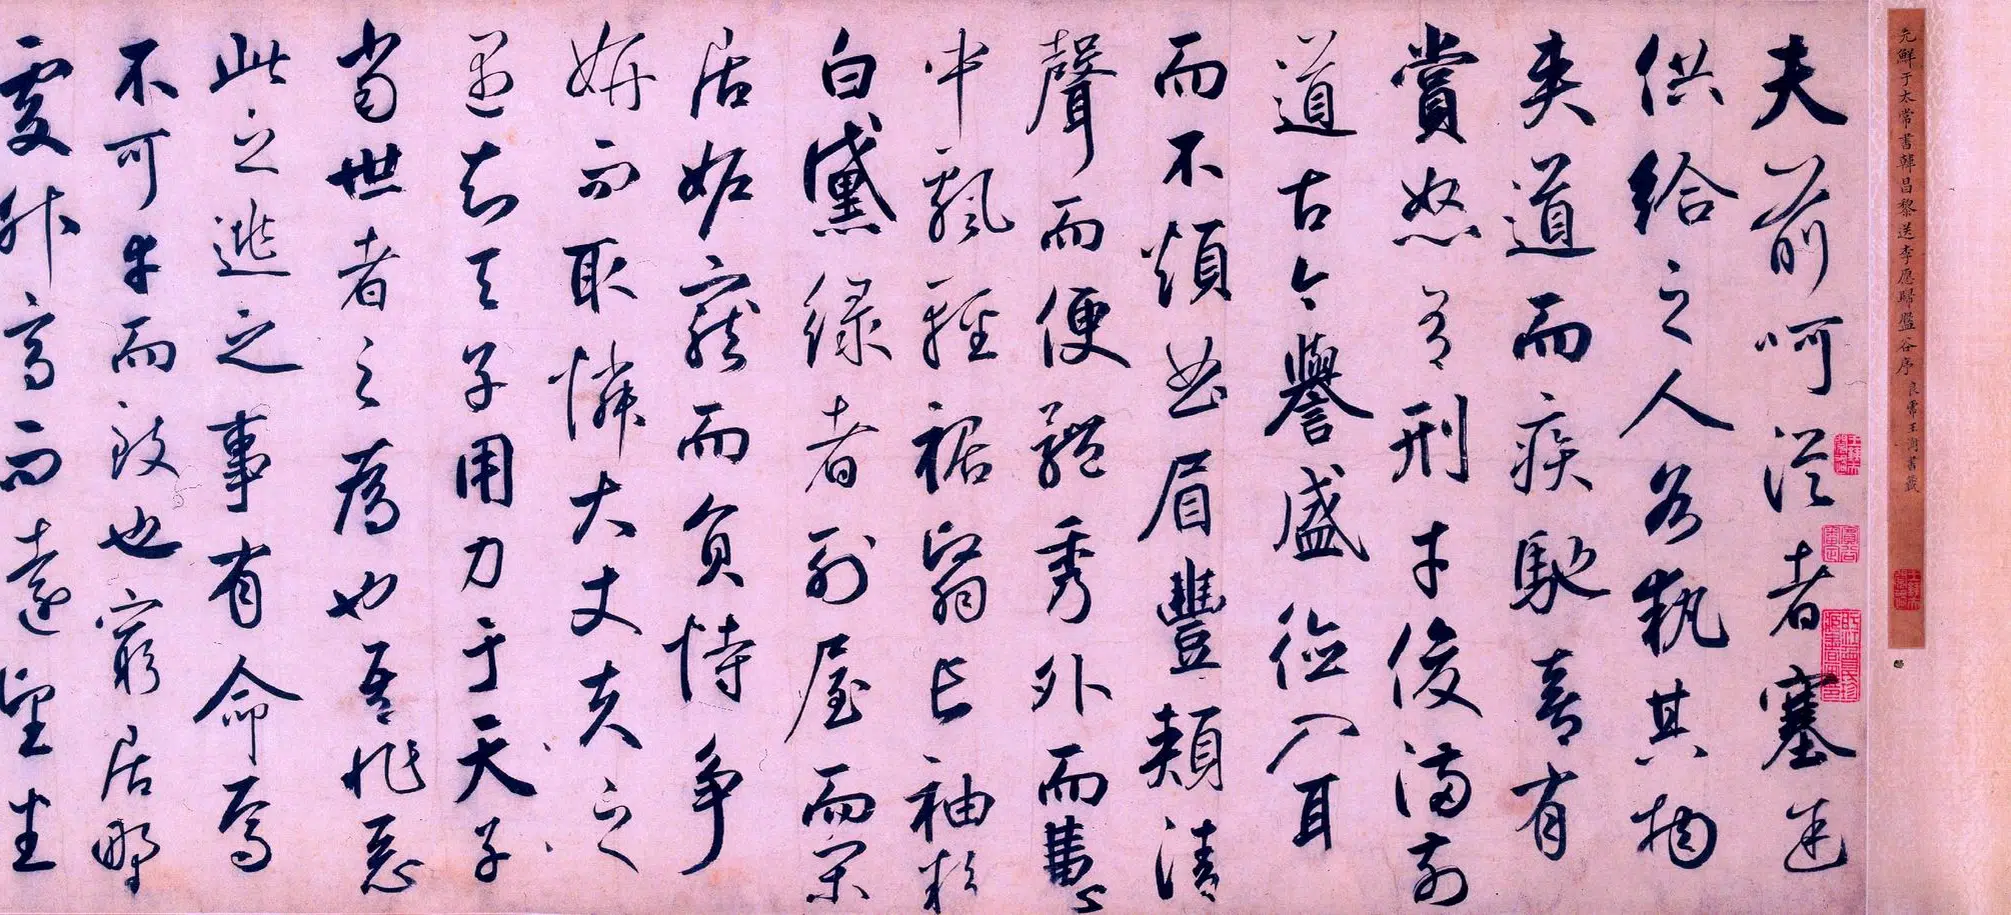 元鮮于太常書韓昌黎送李愿歸盤谷序 良常王澍書籤
夫前呵從者塞途
供給之人各執其物
夾道而疾馳喜有
賞怒有刑才俊滿前
道古今譽盛德入耳
而不煩曲眉豐頰清
聲而便體秀外而慧
中飄輕裾翳長袖粉
白黛綠者列屋而閑
居妬寵而負恃爭
妍而取憐大丈夫之
遇知天子用力于天子
當世者之為也吾非惡
此之逃之事有命焉
不可幸而致也窮居野
處升高而遠望坐